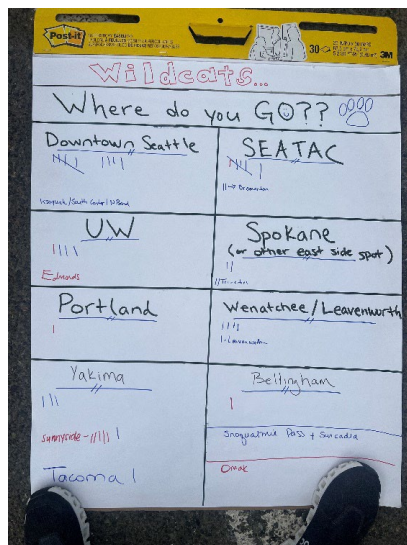 Post-it
30
3M
Wildcats...
Where do you GO??
Downtown Seattle
SEATAC
Bremerton
Issaquah / South Center /
UW
Edmonds
Spokane
(or other east side spot)
Portland
Wenatchee/Leavenworth
1-Leavenworth
Yakima
Sunnyside -
Tacoma
Bellingham
Snoqualmie Pass + Suncadia
Omak